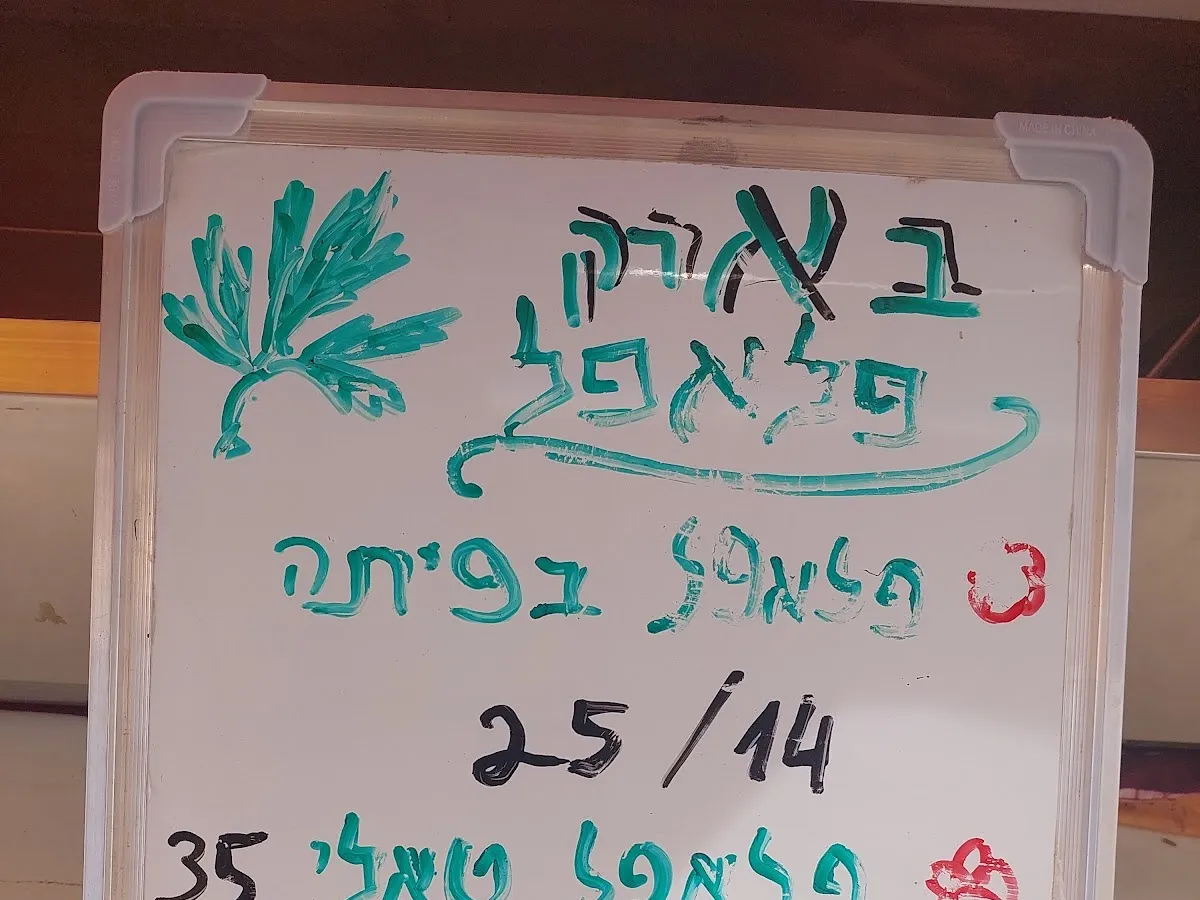 MADE IN CHINA
בארק
פלאפל
פלאפל בפיתה
25/14
פלאפל טאלי 35